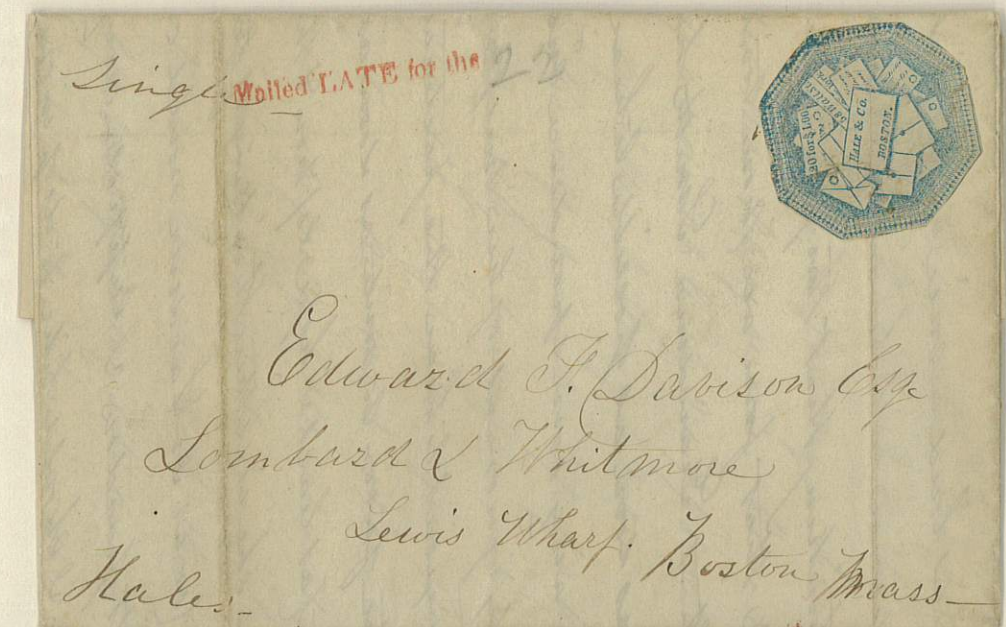 Single
Mailed LATE for the
22
HALE & Co.
BOSTON.
20 for $1.00
Edward F. Davison Esq
Lombard & Whitmore
Lewis Wharf.
Boston Mass
Hale.